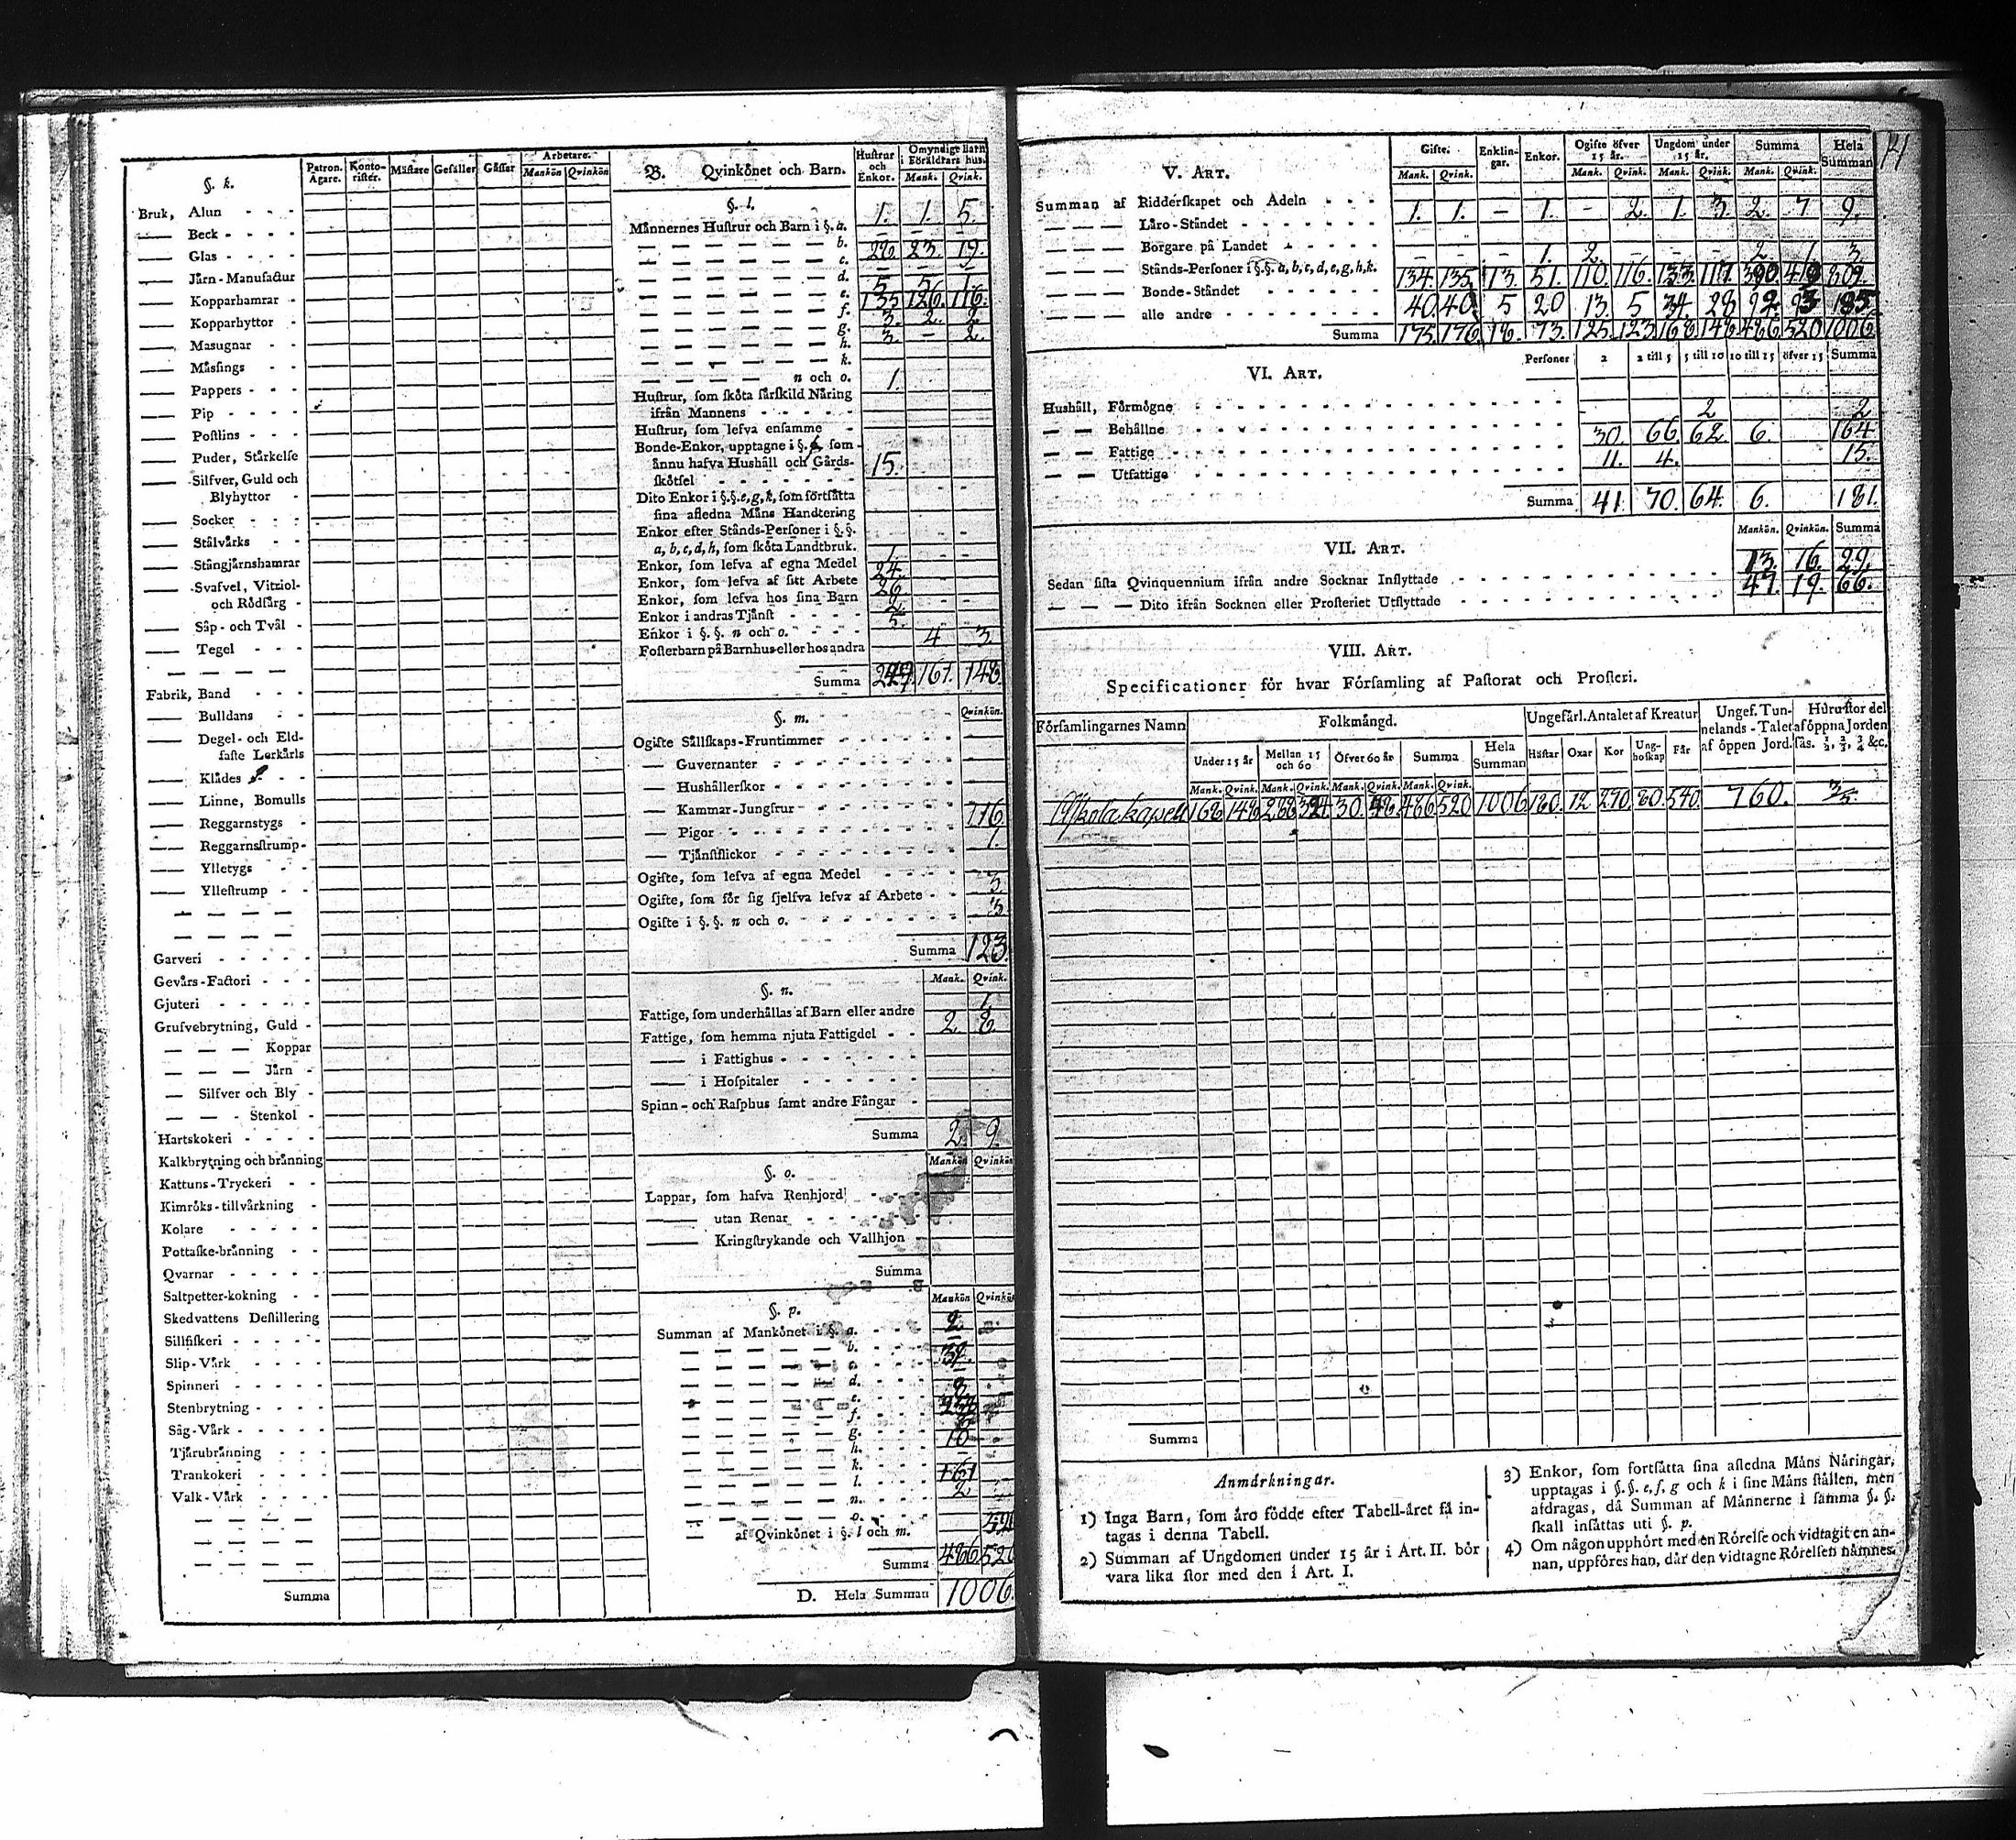 §. k.
Patron. Ägare.
Konto-rister.
Mästare
Gesäller
Gåssar
Arbetare.
Mankön Qvinkön
Bruk, Alun
Beck
Glas
Jårn-Manufactur
Kopparhamrar
Kopparhyttor
Masugnar
Måsings
Pappers
Pip
Postlins
Puder, Stårkelse
Silfver, Guld och
Blyhyttor
Socker
Stålvårks
Stångjårnshamrar
Svafvel, Vitriol-
och Rödfårg
Såp- och Tvål
Tegel
Fabrik, Band
Bulldans
Degel- och Eld-
faste Lerkårls
Klådes
Linne, Bomulls
Reggarnstygs
Reggarnsstrump
Ylletygs
Yllestrump
Garveri
Gevårs-Factori
Gjuteri
Grufvebrytning, Guld
Koppar
Jårn
Silfver och Bly
Stenkol
Hartskokeri
Kalkbrytning och brånning
Kattuns-Tryckeri
Kimröks-tillvårkning
Kolare
Pottaske-brånning
Qvarnar
Saltpetter-kokning
Skedvattens Destillering
Sillfiskeri
Slip-Vårk
Spinneri
Stenbrytning
Såg-Vårk
Tjårubrånning
Trankokeri
Valk-Vårk
Summa
B. Qvinkönet och Barn.
Hustrur och Enkor.
Omyndige Barn i Föräldrars hus.
Mank. Qvink.
§. l.
Månnernes Hustrur och Barn i §. a. 1. 1. 5.
b. — — —
c. 26. 23. 19.
d. — — —
e. 5. 5. 1.
f. 135. 126. 116.
g. 3. 2. 2.
h. 3. — 2.
k.
n och o. 1.
Hustrur, som sköta sårskild Nåring
ifrån Mannens
Hustrur, som lefva ensamme
Bonde-Enkor, upptagne i §. som
ånnu hafva Hushåll och Gårds-
skötsel 15.
Dito Enkor i §.§. e, g, k, som fortsåtta
sina afledna Måns Handtering
Enkor efter Stånds-Personer i §.§.
a, b, c, d, h, som sköta Landtbruk. 1.
Enkor, som lefva af egna Medel 24.
Enkor, som lefva af sitt Arbete 26.
Enkor, som lefva hos sina Barn 2.
Enkor i andras Tjånst 5.
Enkor i §.§. n och o.
Fosterbarn på Barnhus eller hos andra 4 3.
Summa 161. 148.
§. m. Qvinkön.
Ogifte Sållskaps-Fruntimmer
Guvernanter
Hushållerskor
Kammar-Jungfrur
Pigor 116.
Tjånstflickor 1.
Ogifte, som lefva af egna Medel 3.
Ogifte, som för sig sjelfva lefva af Arbete 3.
Ogifte i §.§. n och o.
Summa 123.
Mank. Qvink.
§. n.
Fattige, som underhållas af Barn eller andre 1.
Fattige, som hemma njuta Fattigdel 2. 8.
i Fattighus
i Hospitaler
Spinn- och Rasphus samt andre Fångar
Summa 2. 9.
Mankön Qvinkön
§. o.
Lappar, som hafva Renhjord
utan Renar
Kringstrykande och Vallhjon
Summa
Mankön Qvinkön
§. p.
Summan af Mankönet i §. a. 2.
b. —
c.
d. —
e.
f.
g.
h. 10
k. —
l. 161
n. 2.
o.
af Qvinkönet i §. l och m. 520
Summa 486 520
D. Hela Summan 1006.
V. Art.
Gifte. Enklin-gar. Enkor. Ogifte öfver 15 år. Ungdom under 15 år. Summa Hela Summan
Mank. Qvink. Mank. Qvink. Mank. Qvink. Mank. Qvink.
Summan af Ridderskapet och Adeln 1. 1. — 1. — 2. 1. 3. 2. 7 9.
Låro-Ståndet
Borgare på Landet — — — 1. 2. — — — 2. 1. 3.
Stånds-Personer i §.§. a, b, c, d, e, g, h, k.
Bonde-Ståndet 134. 135. 13. 51. 110. 116. 133. 117. 390 419 809.
alle andre 40. 40. 5 20 13. 5 34. 28 92. 93 185.
Summa 175. 176. 18. 73. 125. 123. 168. 148. 486. 520. 1006.
VI. Art.
Personer 2 2 till 5 5 till 10 10 till 15 öfver 15 Summa
Hushåll, Förmögne 2 2
Behållne 30. 66. 62. 6. 164.
Fattige 11. 4. 15.
Utfattige
Summa 41. 70. 64. 6. 181.
Mankön. Qvinkön. Summa
VII. Art.
Sedan sista Qvinquennium ifrån andre Socknar Inflyttade 13. 16. 29.
Dito ifrån Socknen eller Prosteriet Utflyttade 47. 19. 66.
VIII. Art.
Specificationer för hvar Församling af Pastorat och Prosteri.
Församlingarnes Namn
Folkmångd.
Ungefårl. Antalet af Kreatur
Ungef. Tun-nelands-Talet af öppen Jord.
Huru stor del af öppna Jorden sås. ½, ⅔, ¾ &c.
Under 15 år Mellan 15 och 60 Öfver 60 år Summa Hela Summan Håstar Oxar Kor Ung-boskap Får
Mank. Qvink. Mank. Qvink. Mank. Qvink. Mank. Qvink.
168 148 288 324 30. 48. 486 520 1006 180. 12 270. 80. 540. 760. 3/5.
Summa
Anmårkningar.
1) Inga Barn, som åro födde efter Tabell-året få in-
tagas i denna Tabell.
2) Summan af Ungdomen under 15 år i Art. II. bör
vara lika stor med den i Art. I.
3) Enkor, som fortsåtta sina afledna Måns Nåringar,
upptagas i §.§. e, f, g och k i sine Måns stållen, men
afdragas, då Summan af Månnerne i samma §.§.
skall insåttas uti §. p.
4) Om någon upphört med en Rörelse och vidtagit en an-
nan, uppföres han, dår den vidtagne Rörelsen nåmnes.